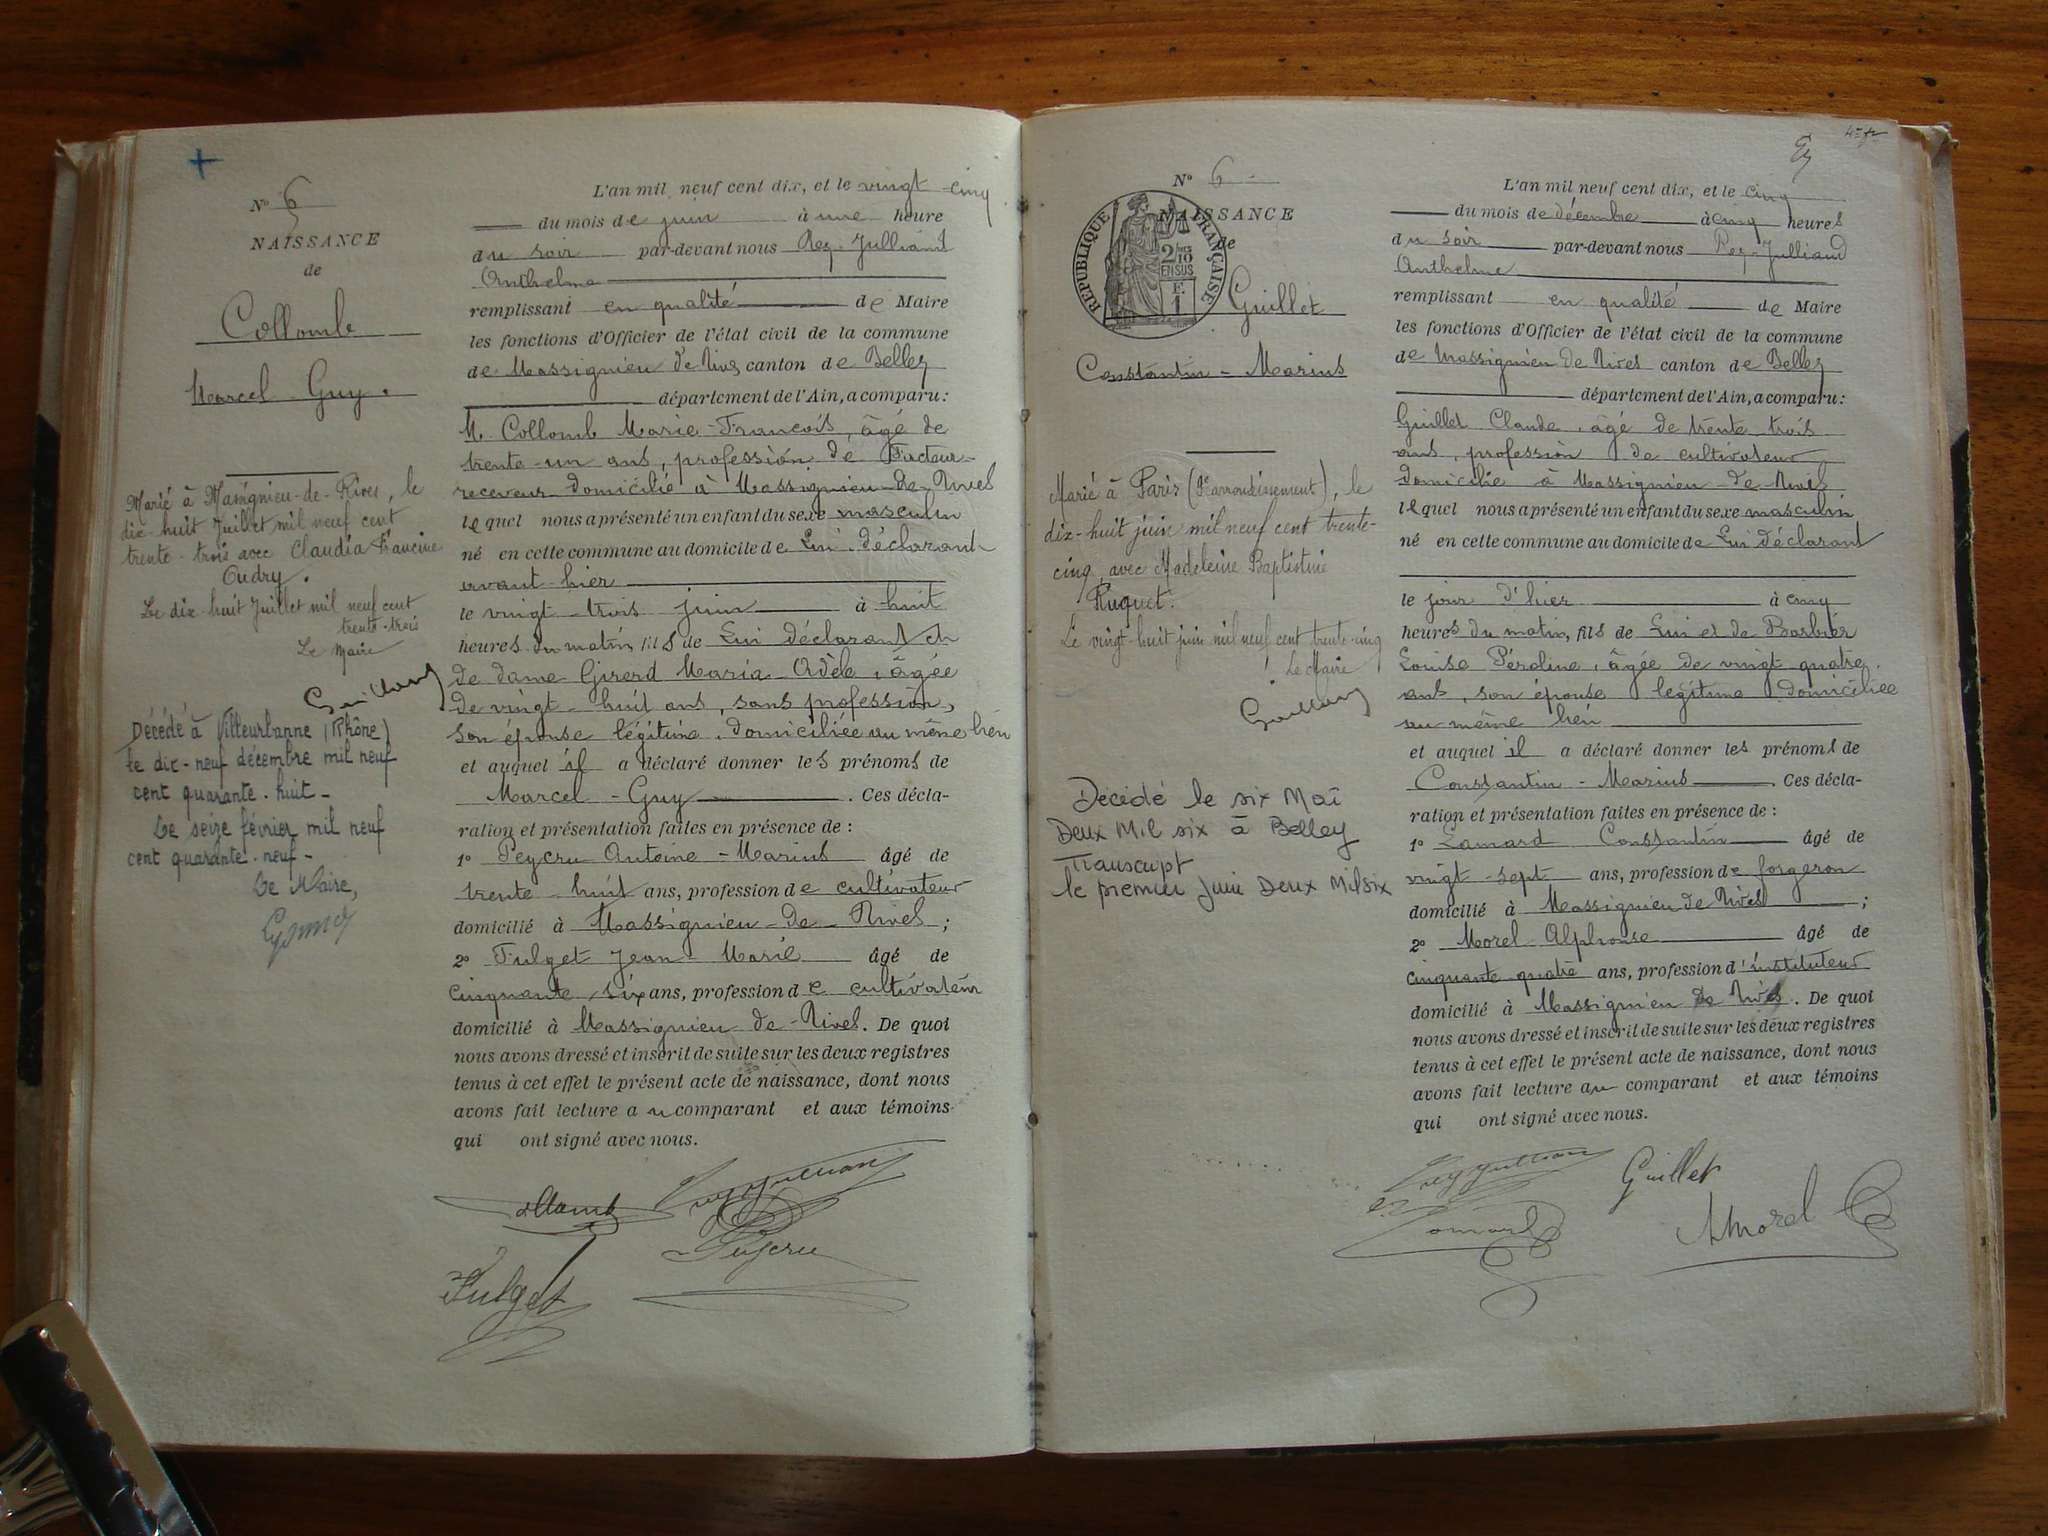 Nº 6
NAISSANCE
de
Collomb
Marcel Guy.
Marié à Massignieu-de-Rives, le
dix-huit Juillet mil neuf cent
trente-trois avec Claudia Francine
Oudry.
Le dix-huit Juillet mil neuf cent
trente-trois
Le Maire
Décédé à Villeurbanne (Rhône)
le dix-neuf décembre mil neuf
cent quarante-huit-
Le seize février mil neuf
cent quarante-neuf-
Le Maire,
L'an mil neuf cent dix, et le vingt-cinq
du mois de juin à une heure
du soir par-devant nous Rey-Julliand
Anthelme
remplissant en qualité de Maire
les fonctions d'Officier de l'état civil de la commune
de Massignieu de Rives canton de Belley
département de l'Ain, a comparu:
M. Collomb Marie-François, âgé de
trente-un ans, profession de Facteur-
receveur domicilié à Massignieu-de-Rives
lequel nous a présenté un enfant du sexe masculin
né en cette commune au domicile de Lui déclarant
avant-hier
le vingt-trois juin à huit
heures du matin, fils de Lui déclarant et
de dame Girerd Maria-Adèle, âgée
de vingt-huit ans, sans profession,
son épouse légitime, domiciliée au même lieu
et auquel il a déclaré donner les prénoms de
Marcel-Guy. Ces décla-
ration et présentation faites en présence de :
1º Peycru Antoine-Marius âgé de
trente-huit ans, profession de cultivateur
domicilié à Massignieu-de-Rives ;
2º Fulget Jean-Marie âgé de
cinquante-six ans, profession de cultivateur
domicilié à Massignieu-de-Rives. De quoi
nous avons dressé et inscrit de suite sur les deux registres
tenus à cet effet le présent acte de naissance, dont nous
avons fait lecture au comparant et aux témoins
qui ont signé avec nous.
Collomb
Rey Julliand
Peycru
Fulget
Nº 6
RÉPUBLIQUE FRANÇAISE
2/10
EN SUS
NAISSANCE
de
Guillet
Constantin-Marius
Marié à Paris, le
dix-huit juin mil neuf cent trente-
cinq, avec Madeleine Baptistine
Ruguet.
Le vingt-huit juin mil neuf cent trente-cinq
Le Maire
Décédé le six Mai
Deux Mil six à Belley
Transcript
le premier Juin Deux Mil six
L'an mil neuf cent dix, et le cinq
du mois de décembre à cinq heures
du soir par-devant nous Rey-Julliand
Anthelme
remplissant en qualité de Maire
les fonctions d'Officier de l'état civil de la commune
de Massignieu de Rives canton de Belley
département de l'Ain, a comparu:
Guillet Claude, âgé de trente-trois
ans, profession de cultivateur
domicilié à Massignieu-de-Rives
lequel nous a présenté un enfant du sexe masculin
né en cette commune au domicile de Lui déclarant
le jour d'hier à cinq
heures du matin, fils de Lui et de Barbier
Louise Péroline, âgée de vingt quatre
ans, son épouse légitime domiciliée
au même lieu
et auquel il a déclaré donner les prénoms de
Constantin-Marius. Ces décla-
ration et présentation faites en présence de :
1º Lamard Constantin âgé de
vingt-sept ans, profession de forgeron
domicilié à Massignieu de Rives ;
2º Morel Alphonse âgé de
cinquante quatre ans, profession d'instituteur
domicilié à Massignieu de Rives. De quoi
nous avons dressé et inscrit de suite sur les deux registres
tenus à cet effet le présent acte de naissance, dont nous
avons fait lecture au comparant et aux témoins
qui ont signé avec nous.
Rey Julliand
Guillet
Lamard
AMorel